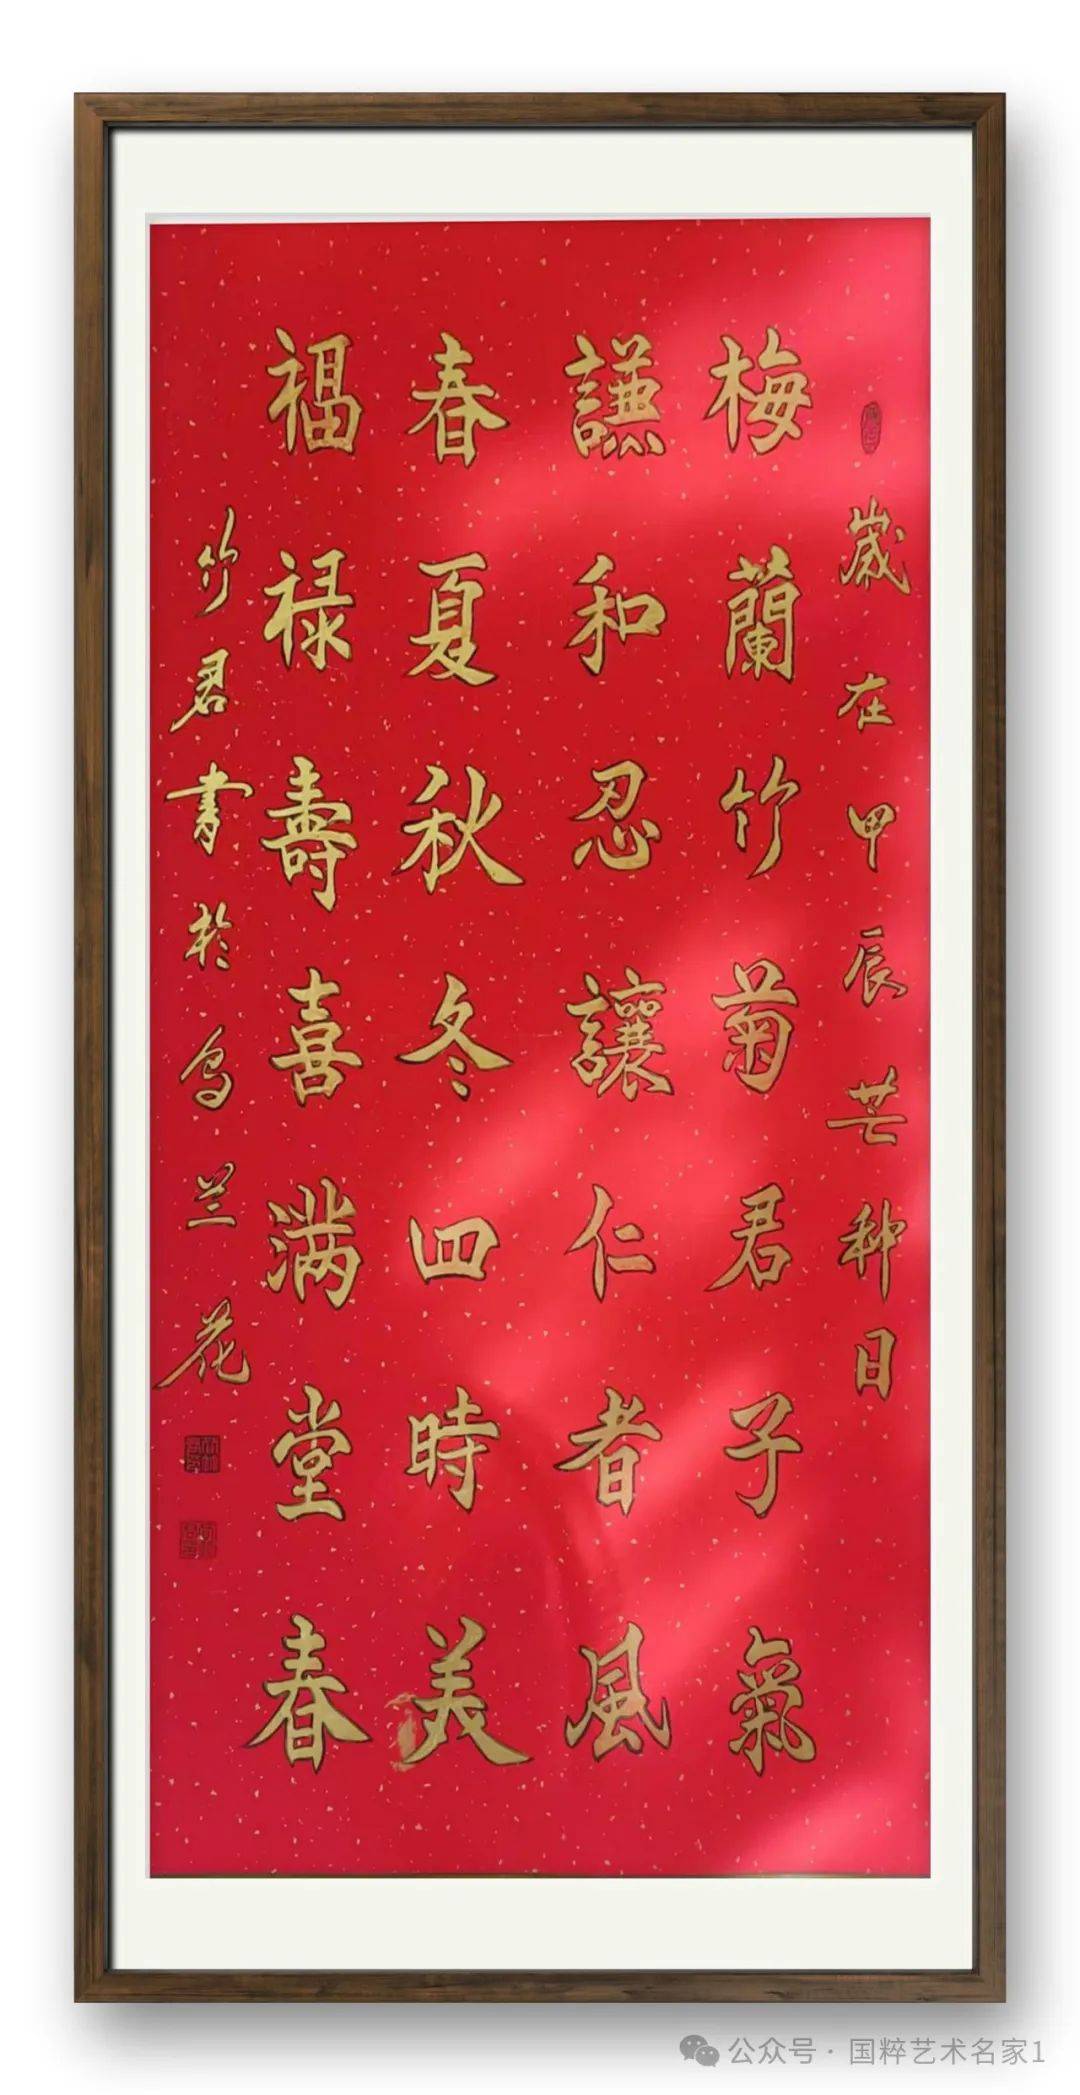 歲在甲辰芒种日
梅蘭竹菊君子氣
謙和忍讓仁者風
春夏秋冬四時美
福禄壽喜满堂春
竹君书於乌兰花
公众号·国粹艺术名家1